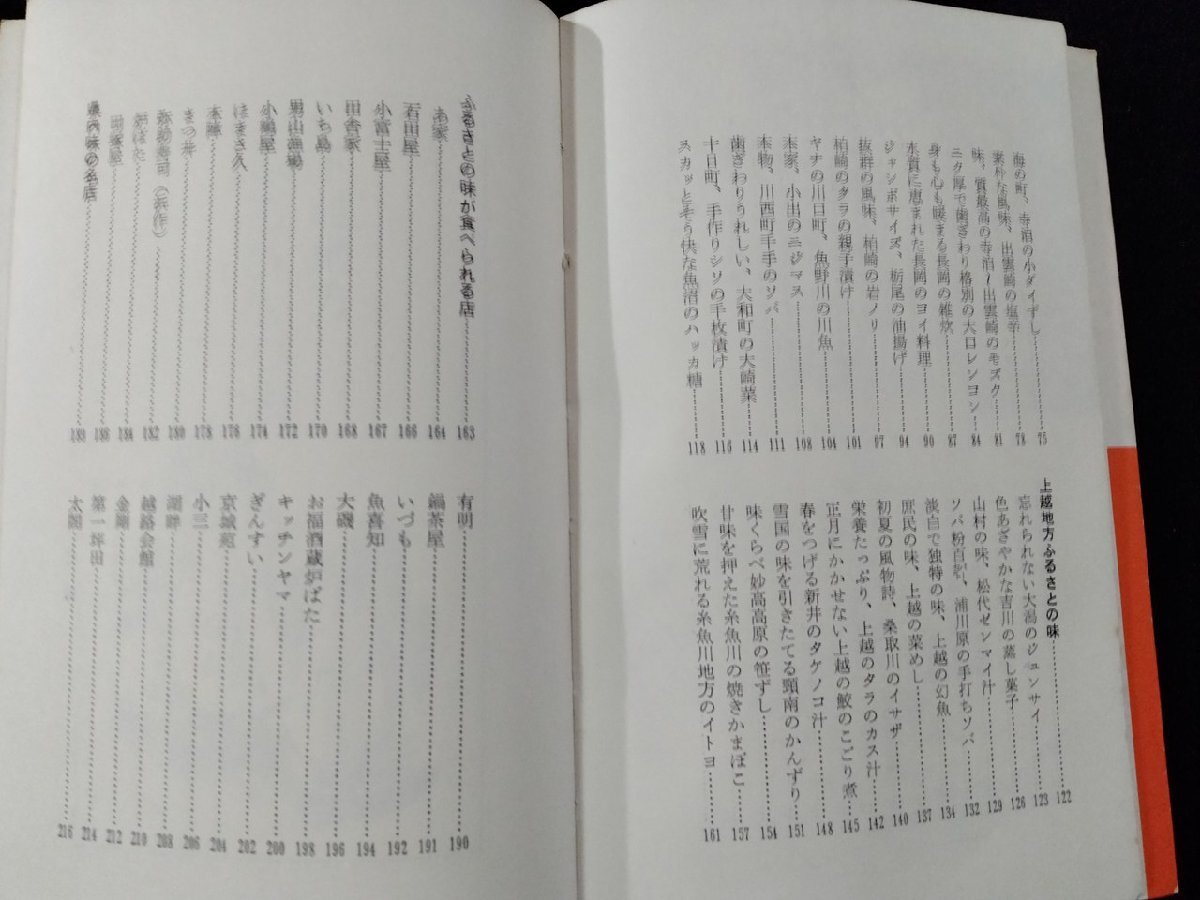 海の町、寺泊の小ダイずし 75
素朴な風味、出雲崎の塩辛 78
味、質最高の寺泊〜出雲崎のモズク 81
ニク厚で歯ざわり格別の大口レンコン 84
身も心も暖まる長岡の雑炊 87
水質に恵まれた長岡のコイ料理 90
ジャンボサイズ、栃尾の油揚げ 94
抜群の風味、柏崎の岩ノリ 97
柏崎のタラの親子漬け 101
ヤナの川口町、魚野川の川魚 104
本家、小出のニジマス 108
本物、川西町千手のソバ 111
歯ざわりうれしい、大和町の大崎菜 114
十日町、手作りシソの千枚漬け 116
スカッとそう快な魚沼のハッカ糖 118
上越地方ふるさとの味 122
忘れられない大潟のジュンサイ 123
色あざやかな吉川の蒸し菓子 126
山村の味、松代ゼンマイ汁 129
ソバ粉百%、浦川原の手打ちソバ 132
淡白で独特の味、上越の幻魚 134
庶民の味、上越の菜めし 137
初夏の風物詩、桑取川のイサザ 140
栄養たっぷり、上越のタラのカス汁 142
正月にかかせない上越の鮫のこごり煮 145
春をつげる新井のタケノコ汁 148
雪国の味を引きたてる頸南のかんずり 151
味くらべ妙高高原の笹ずし 154
甘味を押えた糸魚川の焼きかまぼこ 157
吹雪に荒れる糸魚川地方のイトヨ 161
ふるさとの味が食べられる店 163
本家 164
石田屋 166
小富士屋 167
田舎家 168
いち島 170
男山漁場 172
小嶋屋 174
はま き久 176
本陣 178
まつ井 180
弥助寿司(兵作) 182
炉ばた 184
186
県内味の名店 189
有明 190
鍋茶屋 191
いづも 192
魚喜知 194
大磯 196
お福酒蔵炉ばた 198
キッチンヤマ 200
ぎんすい 202
京城苑 204
小三 206
湖畔 208
越路会館 210
金剛 212
第一坪田 214
太閤 216